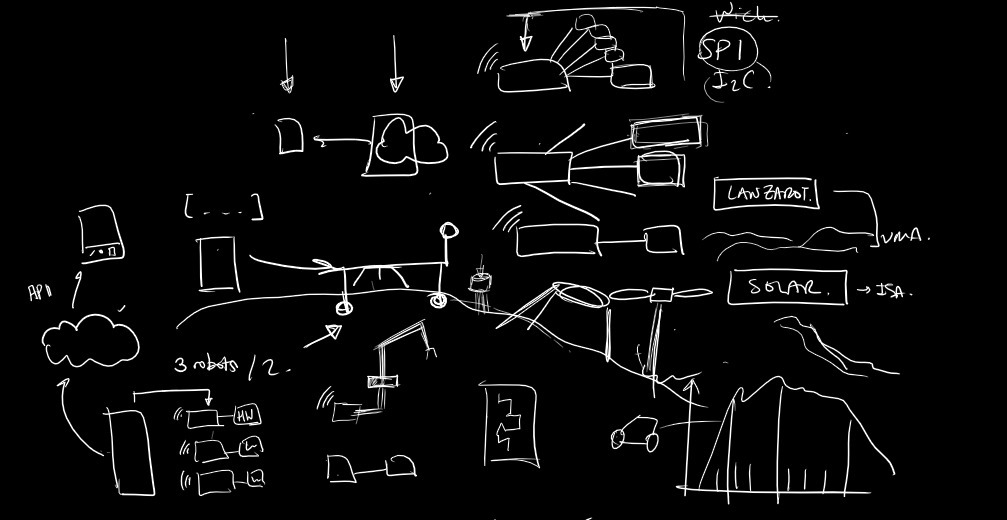 SPI
I2C.
LANZAROT.
UMA.
[ - - - - ]
SOLAR.
→ ISA.
API
3 robots / 2.
HW